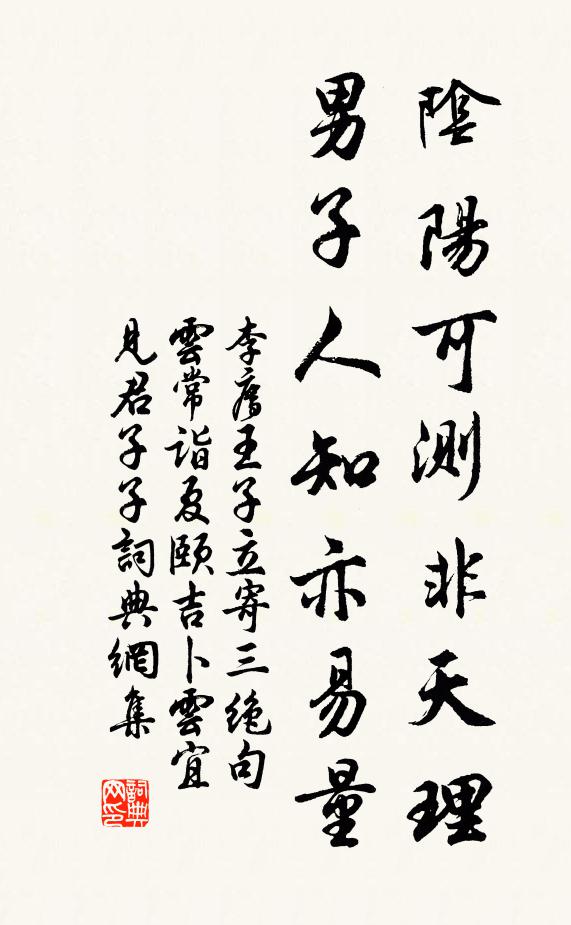 陰陽可測非天理
男子人知亦易量
李廌王子立寄三絶句
雲常詣夏頤吉卜雲宜
見君子子詞典網集
詞典網印